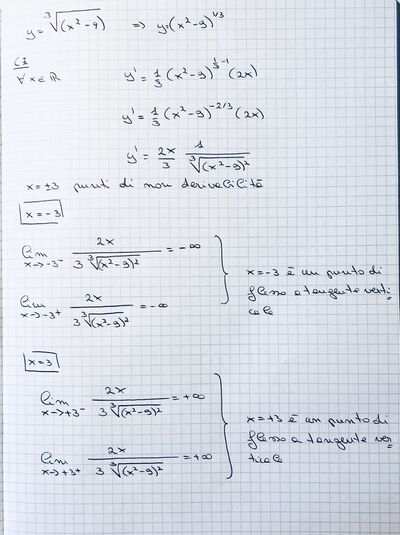 y = ∛(x²-9) ⇒ y=(x²-9)^1/3
C.E.
∀x∈ℝ y' = 1/3 (x²-9)^(1/3 -1) (2x)
y' = 1/3 (x²-9)^(-2/3) (2x)
y' = 2x/3 1/∛(x²-9)²
x=±3 punti di non derivabilità
x=-3
lim x→-3⁻ 2x/(3∛(x²-9)²) = -∞
lim x→-3⁺ 2x/(3∛(x²-9)²) = -∞
x=-3 è un punto di
flesso a tangente verti
cale
x=3
lim x→+3⁻ 2x/(3∛(x²-9)²) = +∞
lim x→+3⁺ 2x/(3∛(x²-9)²) = +∞
x=+3 è un punto di
flesso a tangente ver
ticale